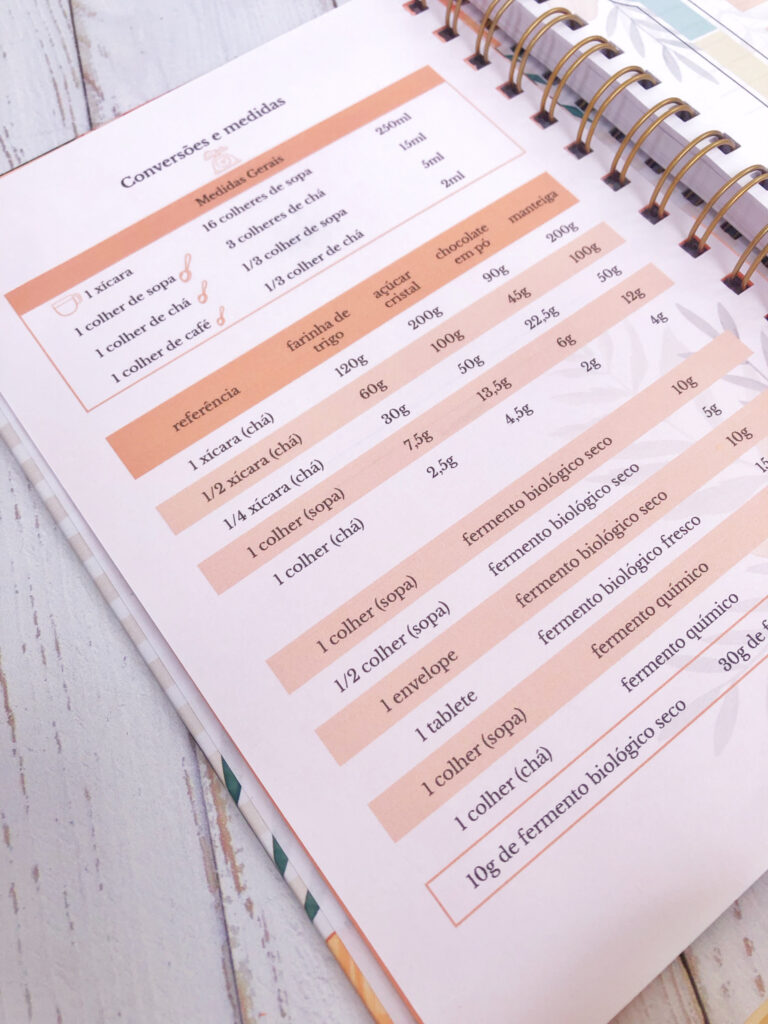 Conversões e medidas
Medidas Gerais
1 xícara 16 colheres de sopa 250ml
1 colher de sopa 3 colheres de chá 15ml
1 colher de chá 1/3 colher de sopa 5ml
1 colher de café 1/3 colher de chá 2ml
referência farinha de trigo açúcar cristal chocolate em pó manteiga
1 xícara (chá) 120g 200g 90g 200g
1/2 xícara (chá) 60g 100g 45g 100g
1/4 xícara (chá) 30g 50g 22,5g 50g
1 colher (sopa) 7,5g 13,5g 6g 12g
1 colher (chá) 2,5g 4,5g 2g 4g
1 colher (sopa) fermento biológico seco 10g
1/2 colher (sopa) fermento biológico seco 5g
1 envelope fermento biológico seco 10g
1 tablete fermento biológico fresco 15
1 colher (sopa) fermento químico
1 colher (chá) fermento químico
10g de fermento biológico seco 30g de